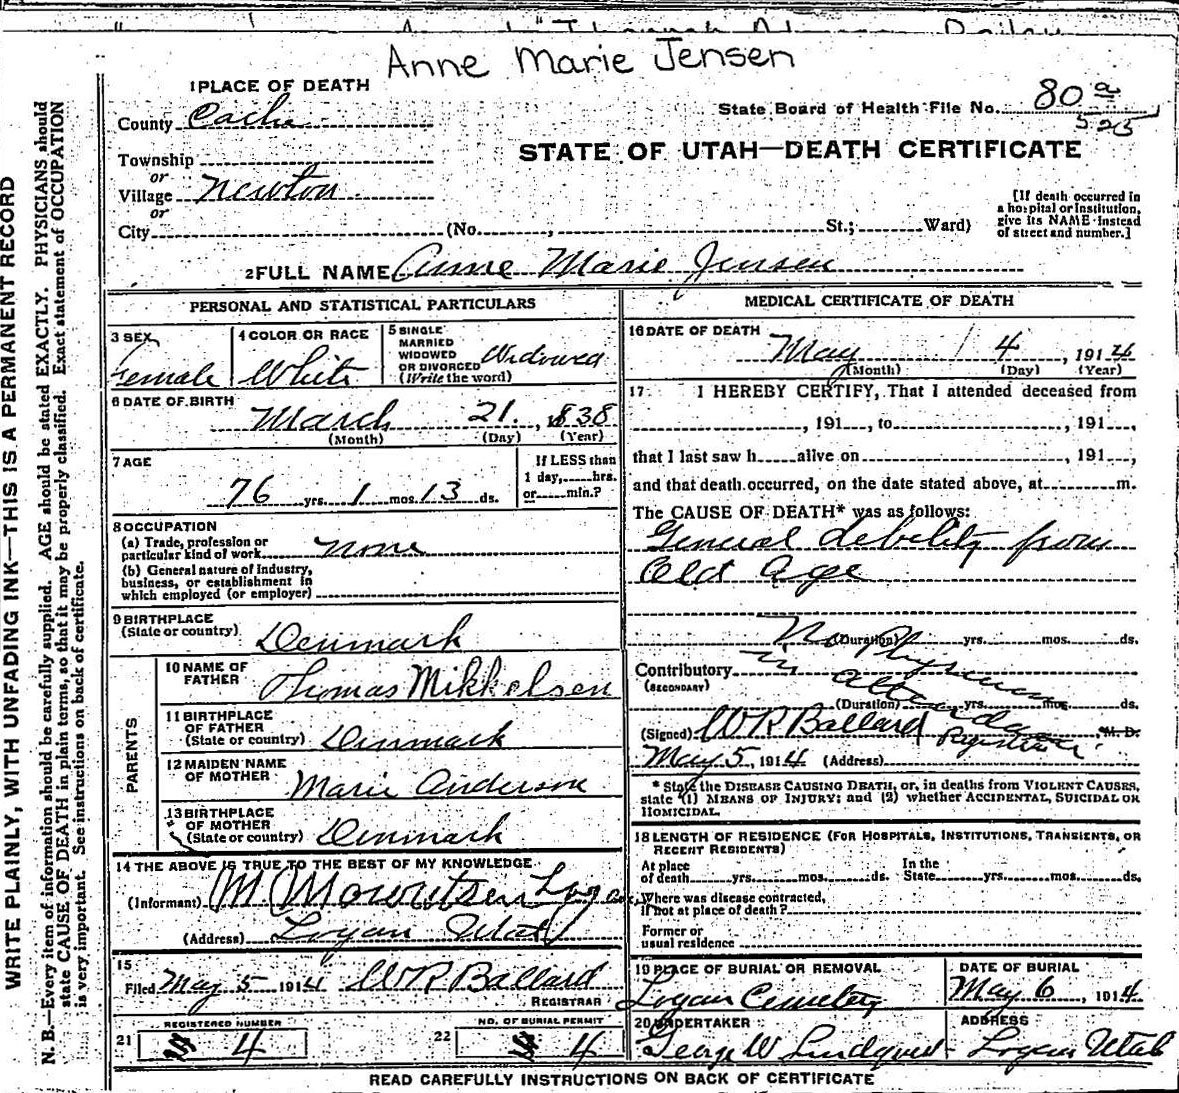 Anne Marie Jensen
1 PLACE OF DEATH
County Cache
State Board of Health File No. 80 a
525
STATE OF UTAH—DEATH CERTIFICATE
Township
or
Village Newton
or
City (No. , St.; Ward)
[If death occurred in
a hospital or institution,
give its NAME instead
of street and number.]
2 FULL NAME Anne Marie Jensen
PERSONAL AND STATISTICAL PARTICULARS
3 SEX
Female
4 COLOR OR RACE
White
5 SINGLE
MARRIED
WIDOWED
OR DIVORCED
(Write the word)
Widowed
6 DATE OF BIRTH
March 21, 1838
(Month) (Day) (Year)
7 AGE
76 yrs. 1 mos. 13 ds.
If LESS than
1 day, hrs.
or min.?
8 OCCUPATION
(a) Trade, profession or
particular kind of work none
(b) General nature of industry,
business, or establishment in
which employed (or employer)
9 BIRTHPLACE
(State or country) Denmark
PARENTS
10 NAME OF
FATHER Thomas Mikkelsen
11 BIRTHPLACE
OF FATHER
(State or country) Denmark
12 MAIDEN NAME
OF MOTHER Marie Anderson
13 BIRTHPLACE
OF MOTHER
(State or country) Denmark
14 THE ABOVE IS TRUE TO THE BEST OF MY KNOWLEDGE
(Informant) M. C. Mouritsen Logan
(Address) Logan Utah
15
Filed May 5 1914 W R Ballard
REGISTRAR
21 REGISTERED NUMBER
4
22 NO. OF BURIAL PERMIT
4
MEDICAL CERTIFICATE OF DEATH
16 DATE OF DEATH
May 4, 1914
(Month) (Day) (Year)
17 I HEREBY CERTIFY, That I attended deceased from
, 191 , to , 191 ,
that I last saw h alive on , 191 ,
and that death occurred, on the date stated above, at m.
The CAUSE OF DEATH* was as follows:
General debility from
Old age
(Duration) yrs. mos. ds.
No Physician
in attendance
Contributory
(SECONDARY)
(Duration) yrs. mos. ds.
(Signed) W R Ballard Registrar M. D.
May 5, 1914 (Address)
* State the DISEASE CAUSING DEATH, or, in deaths from VIOLENT CAUSES,
state (1) MEANS OF INJURY; and (2) whether ACCIDENTAL, SUICIDAL OR
HOMICIDAL.
18 LENGTH OF RESIDENCE (FOR HOSPITALS, INSTITUTIONS, TRANSIENTS, OR
RECENT RESIDENTS)
At place
of death yrs. mos. ds.
In the
State yrs. mos. ds.
Where was disease contracted,
if not at place of death?
Former or
usual residence
19 PLACE OF BURIAL OR REMOVAL
Logan Cemetery
DATE OF BURIAL
May 6, 1914
20 UNDERTAKER
George W Lindquist
ADDRESS
Logan Utah
READ CAREFULLY INSTRUCTIONS ON BACK OF CERTIFICATE
WRITE PLAINLY, WITH UNFADING INK—THIS IS A PERMANENT RECORD
N. B.—Every item of information should be carefully supplied. AGE should be stated EXACTLY. PHYSICIANS should
state CAUSE OF DEATH in plain terms, so that it may be properly classified. Exact statement of OCCUPATION
is very important. See instructions on back of certificate.